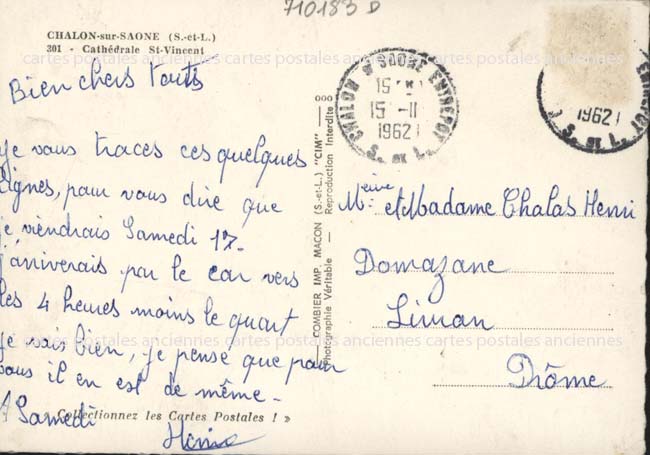 710183 D
CHALON-sur-SAONE (S.-et-L.)
301 - Cathédrale St-Vincent
Bien chers touts
je vous traces ces quelques
lignes, pour vous dire que
je viendrais Samedi 17.
J'arriverais par le car vers
les 4 heures moins le quart
je vais bien, je pense que pour
vous il en est de même.
A Samedi
« Collectionnez les Cartes Postales ! »
COMBIER IMP. MACON (S.-et-L.) "CIM"
Photographie Véritable — Reproduction Interdite
CHALON S SAONE ENTREPOT
15 -11
1962
S. ET L.
1962
S. ET L.
et Madame Chalas Henri
Domazane
Drôme
cartes postales anciennes cartes postales anciennes cartes postales anciennes
cartes postales anciennes cartes postales anciennes cartes postales anciennes